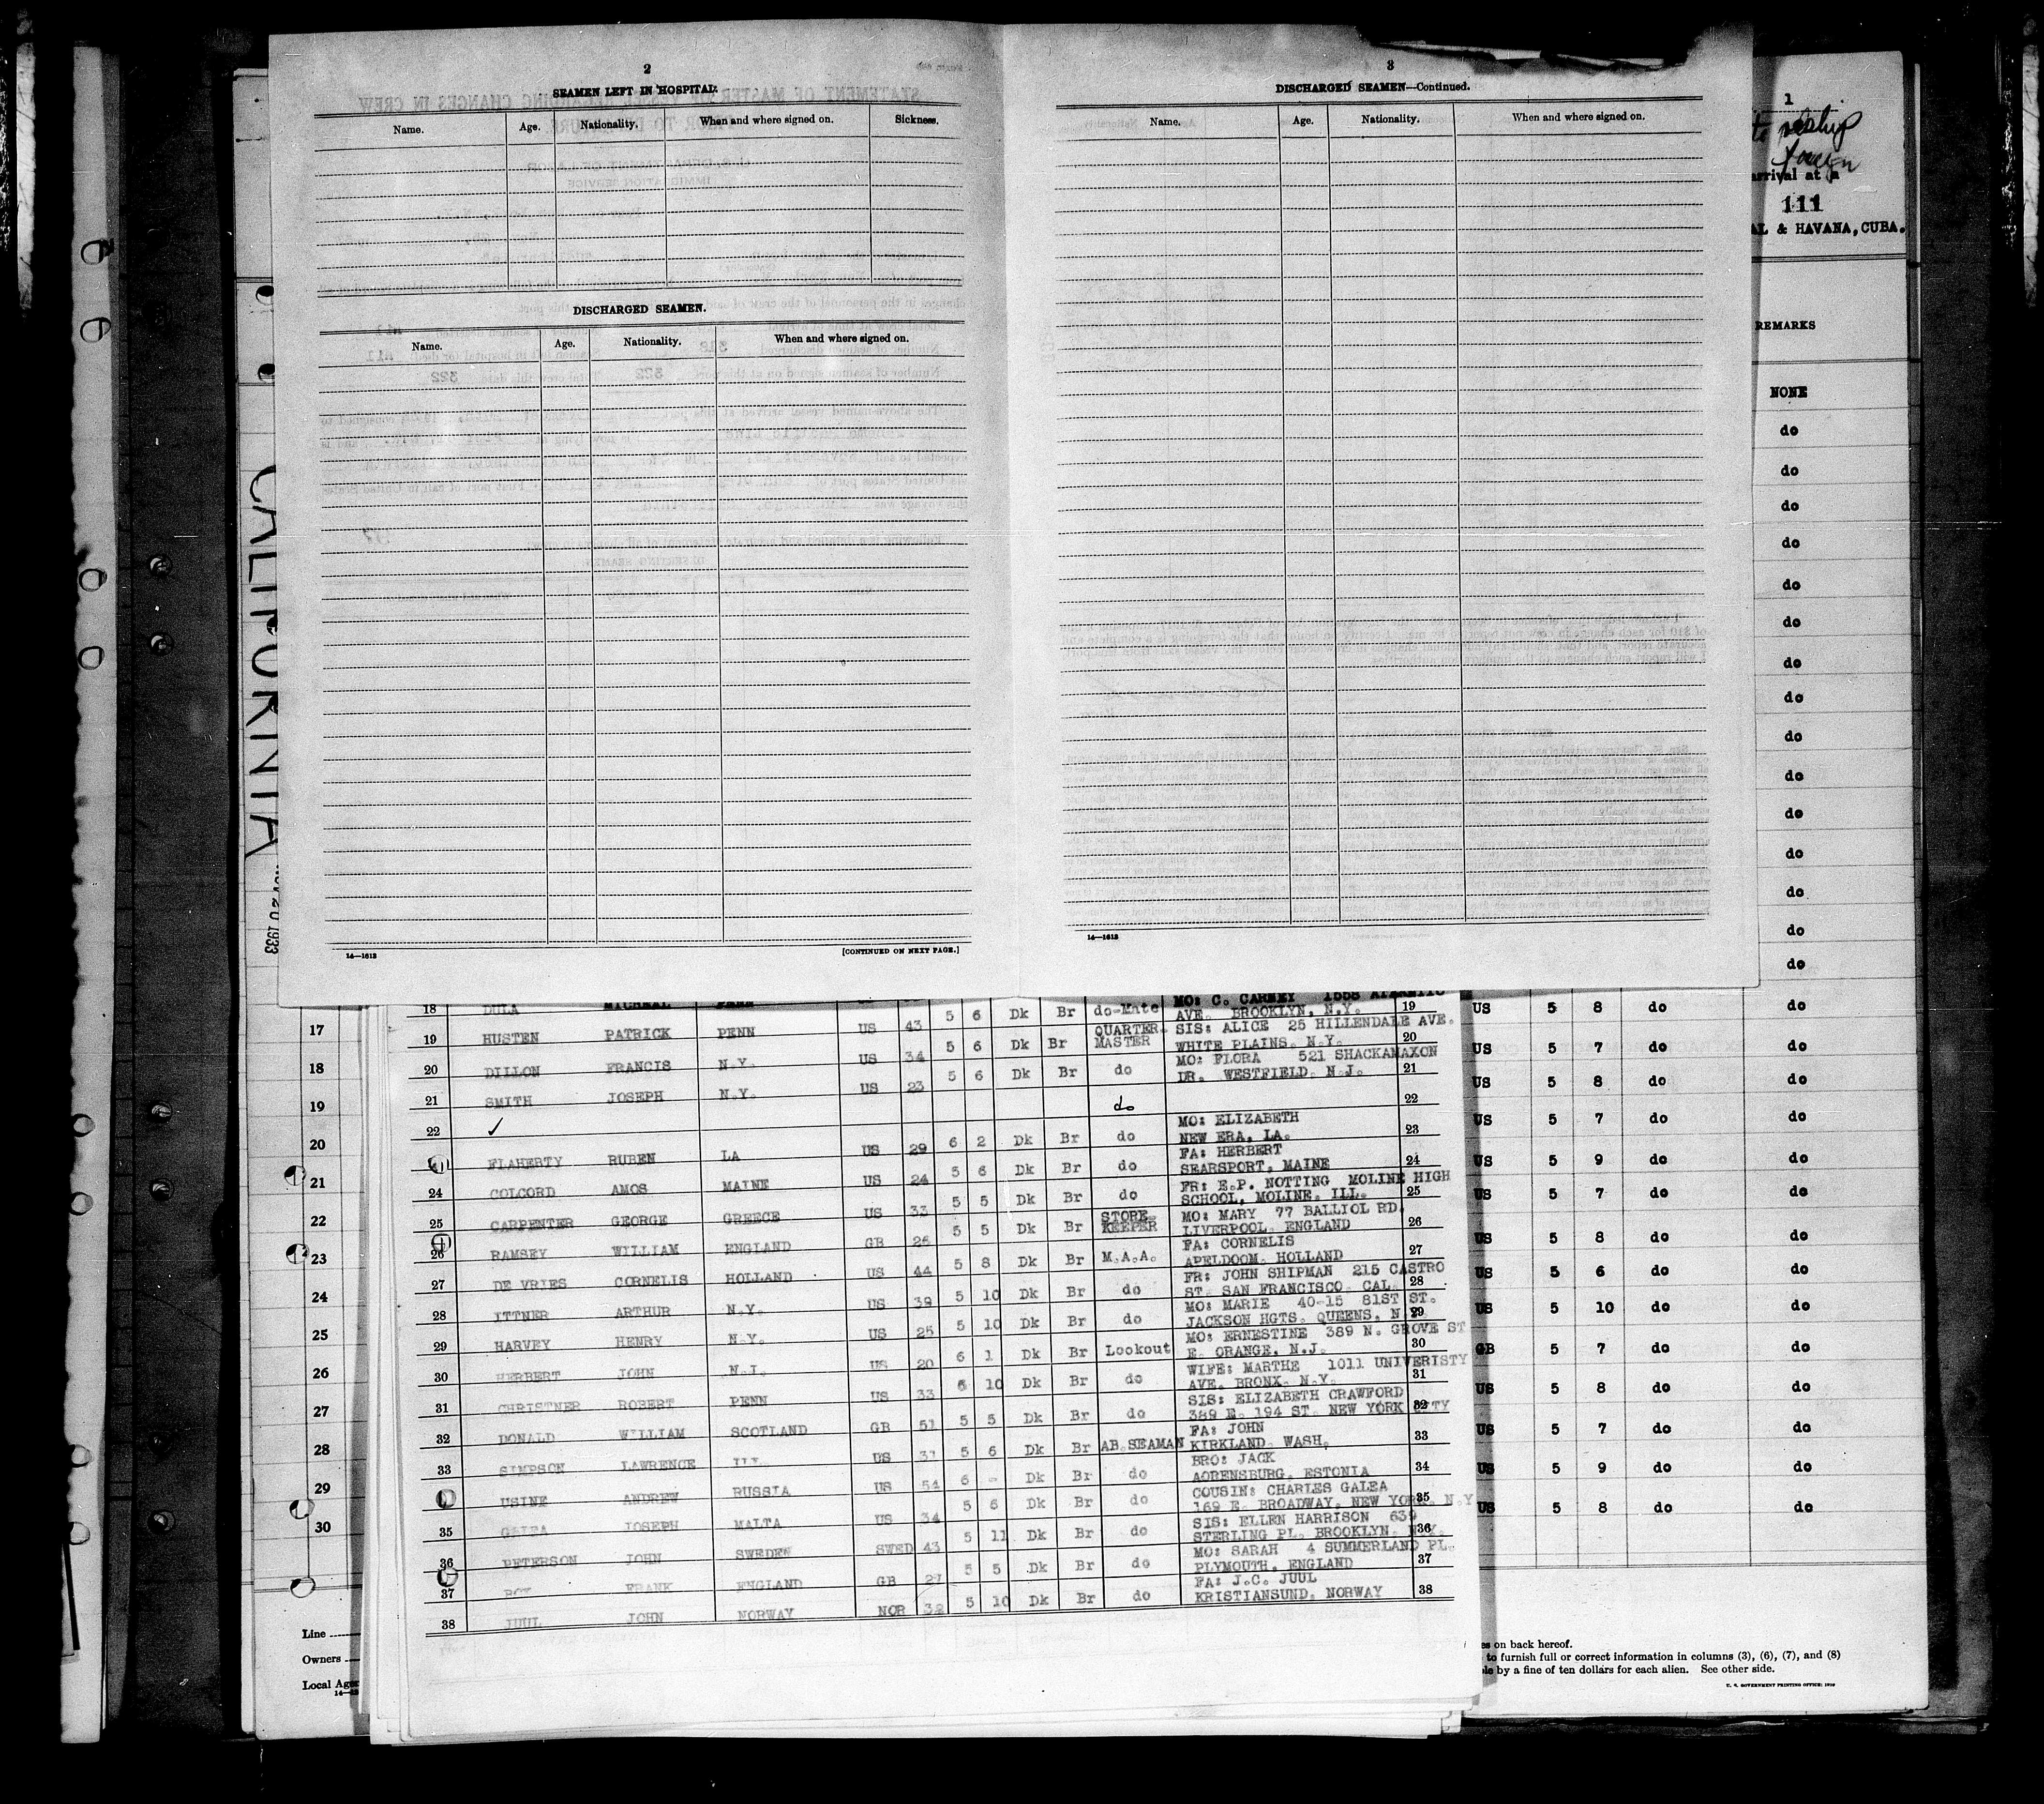 2
SEAMEN LEFT IN HOSPITAL.
Name. Age. Nationality. When and where signed on. Sickness.
DISCHARGED SEAMEN.
Name. Age. Nationality. When and where signed on.
14—1613 [CONTINUED ON NEXT PAGE.]
3
DISCHARGED SEAMEN—Continued.
Name. Age. Nationality. When and where signed on.
14—1613
CALIFORNIA
20 1933
1
arrival at a
111
& HAVANA, CUBA.
REMARKS
NONE
do
do
do
do
do
do
do
do
do
do
do
do
do
do
do
17
18
19
20
21
22
23
24
25
26
27
28
29
30
18 DULA MICHEAL PENN do-Mate MO: C. CARNEY 1558
5 6 Dk Br AVE. BROOKLYN, N.Y. 19
19 HUSTEN PATRICK PENN US 43 5 6 Dk Br QUARTER MASTER SIS: ALICE 25 HILLENDALE AVE.
WHITE PLAINS, N.Y. 20
20 DILLON FRANCIS N.Y. US 34 5 6 Dk Br do MO: FLORA 521 SHACKAMAXON
DR. WESTFIELD, N.J. 21
21 SMITH JOSEPH N.Y. US 23
22 ✓ do 22
FLAHERTY RUBEN LA US 29 6 2 Dk Br do MO: ELIZABETH
NEW ERA, LA. 23
24 COLCORD AMOS MAINE US 24 5 6 Dk Br do FA: HERBERT
SEARSPORT, MAINE 24
25 CARPENTER GEORGE GREECE US 33 5 5 Dk Br do FR: E.P. NOTTING MOLINE HIGH
SCHOOL, MOLINE, ILL. 25
26 RAMSEY WILLIAM ENGLAND GB 25 5 5 Dk Br STORE KEEPER MO: MARY 77 BALLIOL RD.
LIVERPOOL, ENGLAND 26
27 DE VRIES CORNELIS HOLLAND US 44 5 8 Dk Br M.A.A. FA: CORNELIS
APELDOOM, HOLLAND 27
28 ITTNER ARTHUR N.Y. US 39 5 10 Dk Br do FR: JOHN SHIPMAN 215 CASTRO
ST. SAN FRANCISCO, CAL. 28
29 HARVEY HENRY N.Y. US 25 5 10 Dk Br do MO: MARIE 40-15 81ST ST.
JACKSON HGTS. QUEENS, N.Y. 29
30 HERBERT JOHN N.J. US 20 6 1 Dk Br Lookout MO: ERNESTINE 389 N. GROVE ST
E. ORANGE, N.J. 30
31 CHRISTNER ROBERT PENN US 33 6 10 Dk Br do WIFE: MARTHE 1011 UNIVERISTY
AVE. BRONX, N.Y. 31
32 DONALD WILLIAM SCOTLAND GB 51 5 5 Dk Br do SIS: ELIZABETH CRAWFORD
389 E. 194 ST. NEW YORK CITY 32
33 SIMPSON LAWRENCE ILL US 5 6 Dk Br AB.SEAMAN FA: JOHN
KIRKLAND, WASH. 33
USINE ANDREW RUSSIA US 54 6 - Dk Br do BRO: JACK
AORENSBURG, ESTONIA 34
35 GALEA JOSEPH MALTA US 34 5 6 Dk Br do COUSIN: CHARLES GALEA
169 E. BROADWAY, NEW YORK, N.Y 35
36 PETERSON JOHN SWEDEN SWED 43 5 11 Dk Br do SIS: ELLEN HARRISON 639
STERLING PL. BROOKLYN, N.Y. 36
37 FRANK ENGLAND GB 5 5 Dk Br do MO: SARAH 4 SUMMERLAND PL.
PLYMOUTH, ENGLAND 37
38 JUUL JOHN NORWAY NOR 32 5 10 Dk Br do FA: J.C. JUUL
KRISTIANSUND, NORWAY 38
US 5 8 do do
US 5 7 do do
US 5 8 do do
US 5 7 do do
US 5 9 do do
US 5 7 do do
US 5 8 do do
US 5 6 do do
US 5 10 do do
GB 5 7 do do
US 5 8 do do
US 5 7 do do
US 5 9 do do
US 5 8 do do
Line
Owners
Local
on back hereof.
to furnish full or correct information in columns (3), (6), (7), and (8)
by a fine of ten dollars for each alien. See other side.
U. S. GOVERNMENT PRINTING OFFICE: